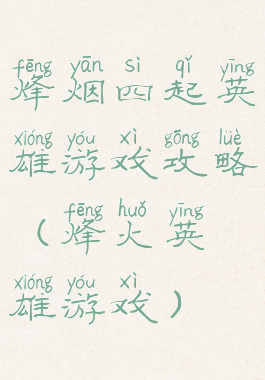 fēng yān sì qǐ yīng
烽烟四起英
xióng yóu xì gōng lüè
雄游戏攻略
fēng huǒ yīng
（烽火英
xióng yóu xì
雄游戏）